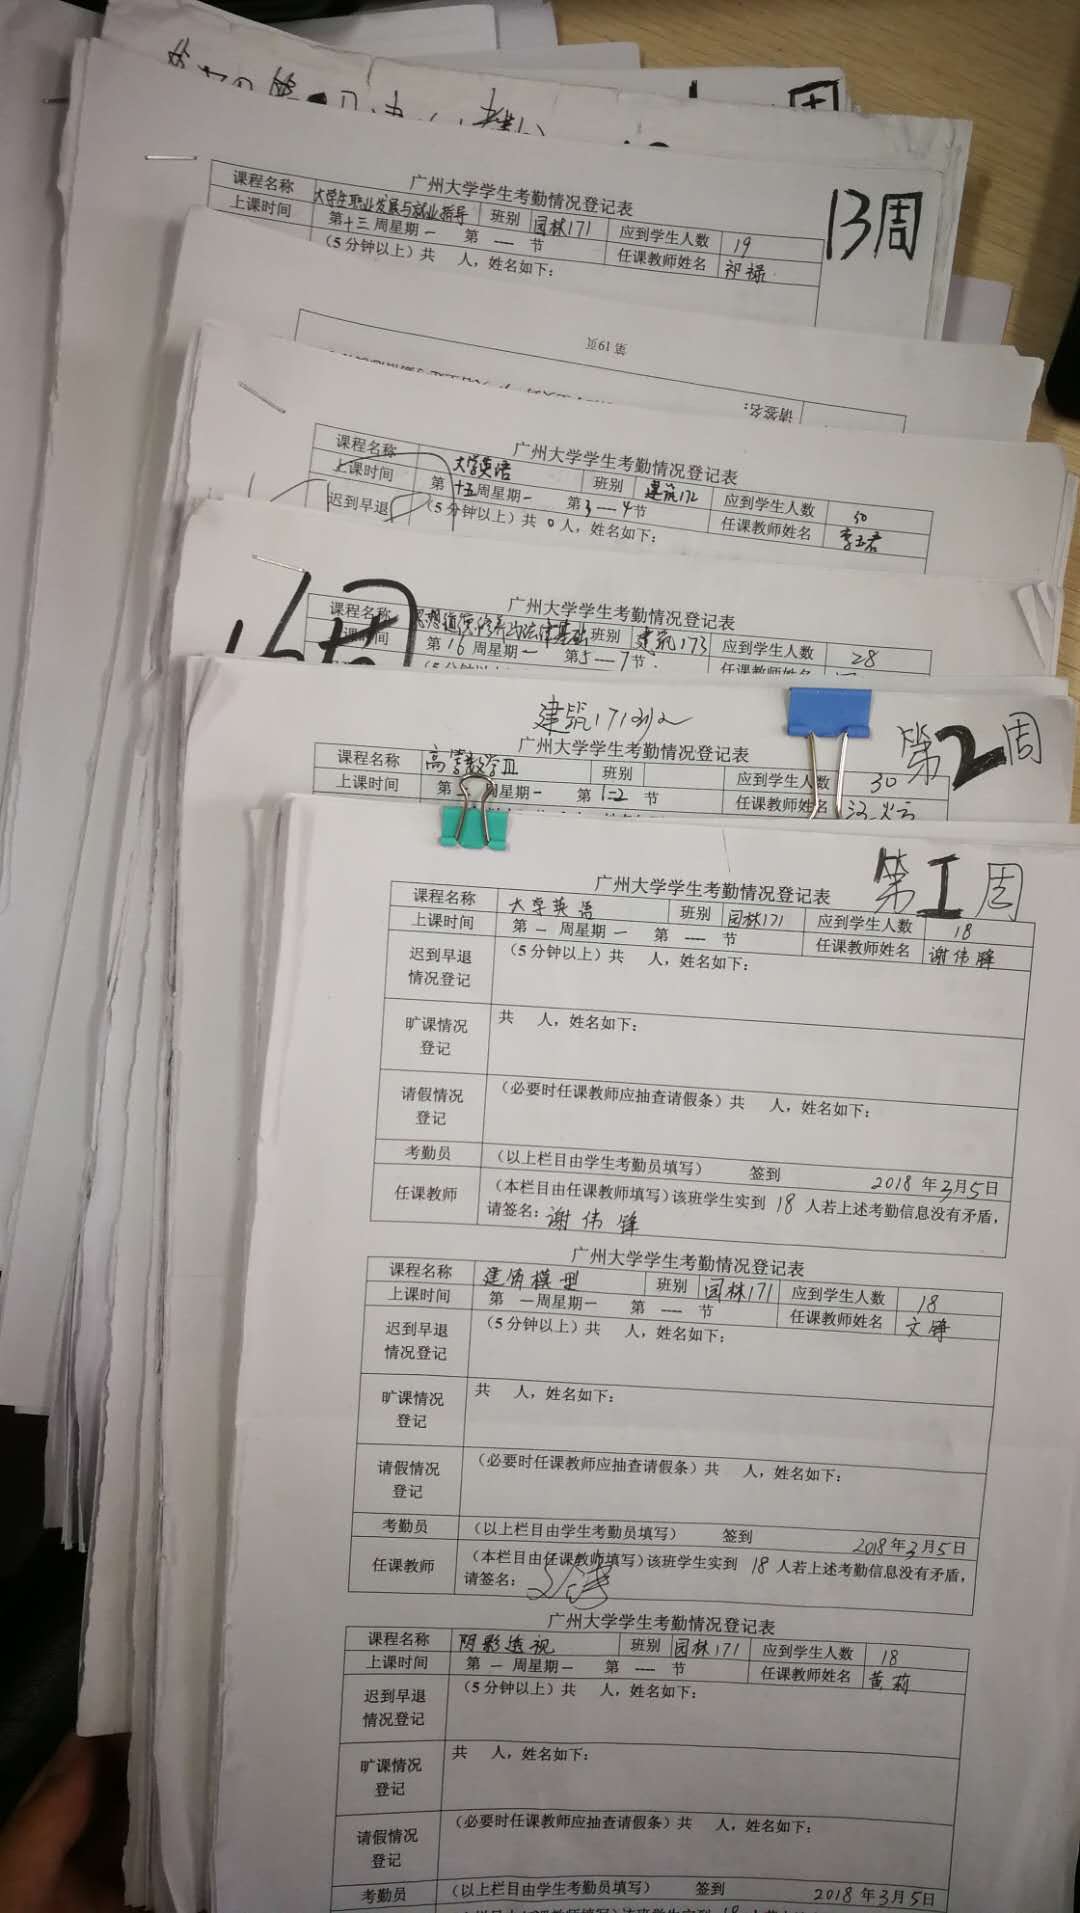 周
13周
广州大学学生考勤情况登记表
课程名称 大学生职业发展与就业指导 班别 园林171 应到学生人数 19
上课时间 第十三周星期一 第 — 节 任课教师姓名 祁禄
(5分钟以上)共 人，姓名如下：
第19页
请签名：
广州大学学生考勤情况登记表
课程名称 大学英语 班别 建筑172 应到学生人数 30
上课时间 第十五周星期一 第3—4节 任课教师姓名 李玉君
迟到早退 (5分钟以上)共 0 人，姓名如下：
16周
广州大学学生考勤情况登记表
课程名称 思想道德修养与法律基础 班别 建筑173 应到学生人数 28
课时间 第16周星期一 第5—7节 任课教师姓名
建筑171
第2周
广州大学学生考勤情况登记表
课程名称 高等数学Ⅲ 班别 应到学生人数 30
上课时间 第二周星期一 第1-2节 任课教师姓名
第1周
广州大学学生考勤情况登记表
课程名称 大学英语 班别 园林171 应到学生人数 18
上课时间 第一周星期一 第 — 节 任课教师姓名 谢伟锋
迟到早退情况登记 (5分钟以上)共 人，姓名如下：
旷课情况登记 共 人，姓名如下：
请假情况登记 (必要时任课教师应抽查请假条)共 人，姓名如下：
考勤员 (以上栏目由学生考勤员填写) 签到 2018年3月5日
任课教师 (本栏目由任课教师填写)该班学生实到 18 人若上述考勤信息没有矛盾，
请签名：谢伟锋
广州大学学生考勤情况登记表
课程名称 建筑模型 班别 园林171 应到学生人数 18
上课时间 第一周星期一 第 — 节 任课教师姓名 文铮
迟到早退情况登记 (5分钟以上)共 人，姓名如下：
旷课情况登记 共 人，姓名如下：
请假情况登记 (必要时任课教师应抽查请假条)共 人，姓名如下：
考勤员 (以上栏目由学生考勤员填写) 签到 2018年3月5日
任课教师 (本栏目由任课教师填写)该班学生实到 18 人若上述考勤信息没有矛盾，
请签名：
广州大学学生考勤情况登记表
课程名称 阴影透视 班别 园林171 应到学生人数 18
上课时间 第一周星期一 第 — 节 任课教师姓名 黄莉
迟到早退情况登记 (5分钟以上)共 人，姓名如下：
旷课情况登记 共 人，姓名如下：
请假情况登记 (必要时任课教师应抽查请假条)共 人，姓名如下：
考勤员 (以上栏目由学生考勤员填写) 签到 2018年3月5日